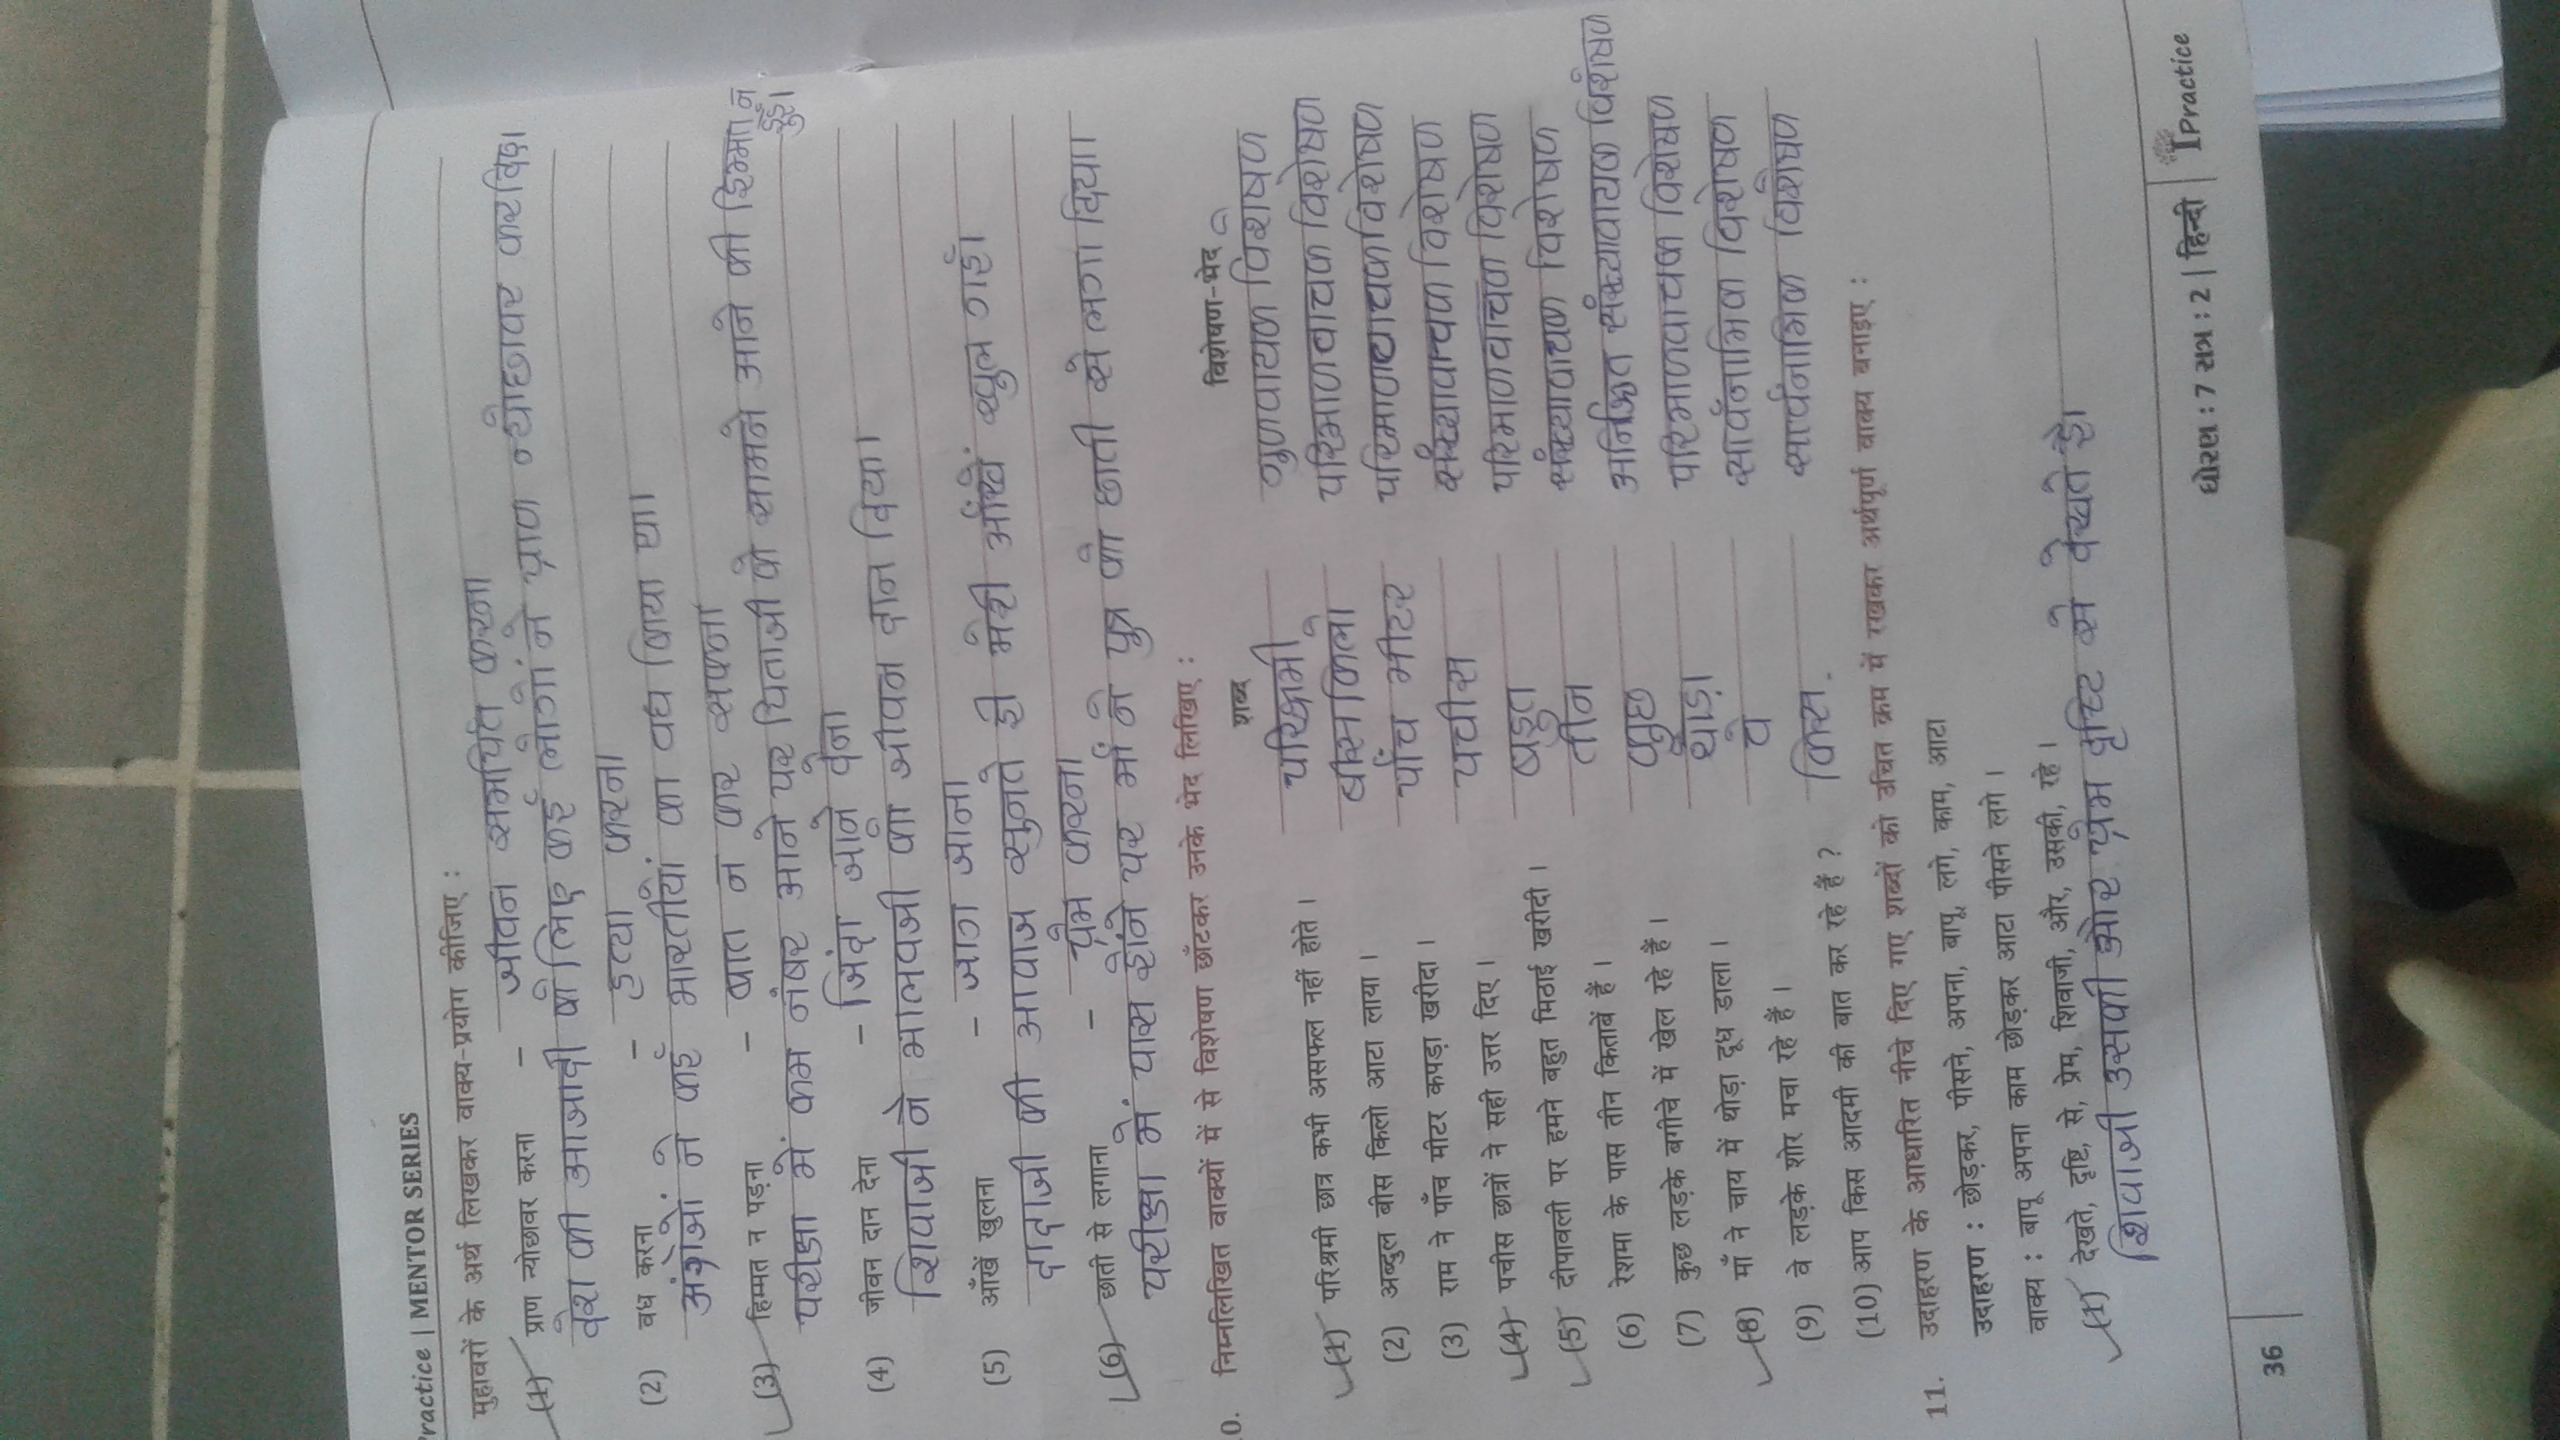 Practice | MENTOR SERIES
मुहावरों के अर्थ लिखकर वाक्य-प्रयोग कीजिए :
(1) प्राण न्योछावर करना - जीवन समर्पित करना
देश की आजादी के लिए कई लोगों ने प्राण न्योछावर कर दिए।
(2) वध करना - हत्या करना
अंग्रेजों ने कई भारतीयों का वध किया था।
(3) हिम्मत न पड़ना - बात न कर सकना
परीक्षा में कम नंबर आने पर पिताजी के सामने आने की हिम्मत न हुई।
(4) जीवन दान देना - जिंदा जाने देना
शिवाजी ने मालवजी को जीवन दान दिया।
(5) आँखें खुलना - जाग जाना
दादाजी की आवाज सुनते ही मेरी आँखें खुल गई।
(6) छाती से लगाना - प्रेम करना
परीक्षा में पास होने पर माँ ने पुत्र को छाती से लगा दिया।
0. निम्नलिखित वाक्यों में से विशेषण छाँटकर उनके भेद लिखिए :
शब्द विशेषण-भेद
(1) परिश्रमी छात्र कभी असफल नहीं होते । परिश्रमी गुणवाचक विशेषण
(2) अब्दुल बीस किलो आटा लाया । बीस किलो परिमाणवाचक विशेषण
(3) राम ने पाँच मीटर कपड़ा खरीदा । पाँच मीटर परिमाणवाचक विशेषण
(4) पचीस छात्रों ने सही उत्तर दिए । पचीस संख्यावाचक विशेषण
(5) दीपावली पर हमने बहुत मिठाई खरीदी । बहुत परिमाणवाचक विशेषण
(6) रेशमा के पास तीन किताबें हैं । तीन संख्यावाचक विशेषण
(7) कुछ लड़के बगीचे में खेल रहे हैं । कुछ अनिश्चित संख्यावाचक विशेषण
(8) माँ ने चाय में थोड़ा दूध डाला । थोड़ा परिमाणवाचक विशेषण
(9) वे लड़के शोर मचा रहे हैं । वे सार्वनामिक विशेषण
(10) आप किस आदमी की बात कर रहे हैं ? किस सार्वनामिक विशेषण
11. उदाहरण के आधारित नीचे दिए गए शब्दों को उचित क्रम में रखकर अर्थपूर्ण वाक्य बनाइए :
उदाहरण : छोड़कर, पीसने, अपना, बापू, लगे, काम, आटा
वाक्य : बापू अपना काम छोड़कर आटा पीसने लगे ।
(1) देखते, दृष्टि, से, प्रेम, शिवाजी, और, उसकी, रहे ।
शिवाजी उसकी ओर प्रेम दृष्टि से देखते है।
36 ધોરણ : 7 સત્ર : 2 | हिन्दी | IPractice